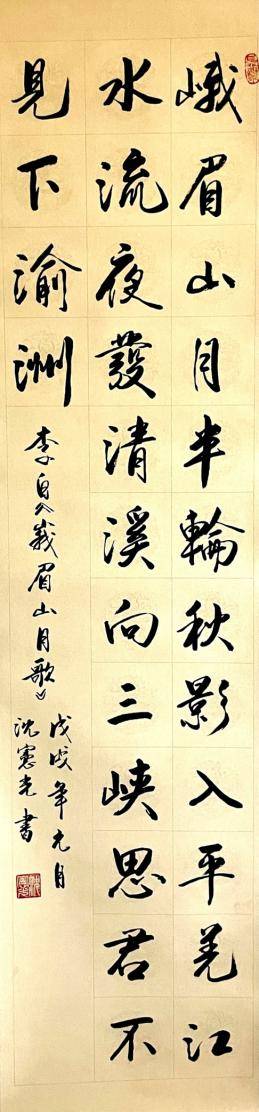 峨眉山月半輪秋影入平羌江
水流夜發清溪向三峽思君不
見下渝洲
李白《峩眉山月歌》
戊戌年元月
沈憲光書